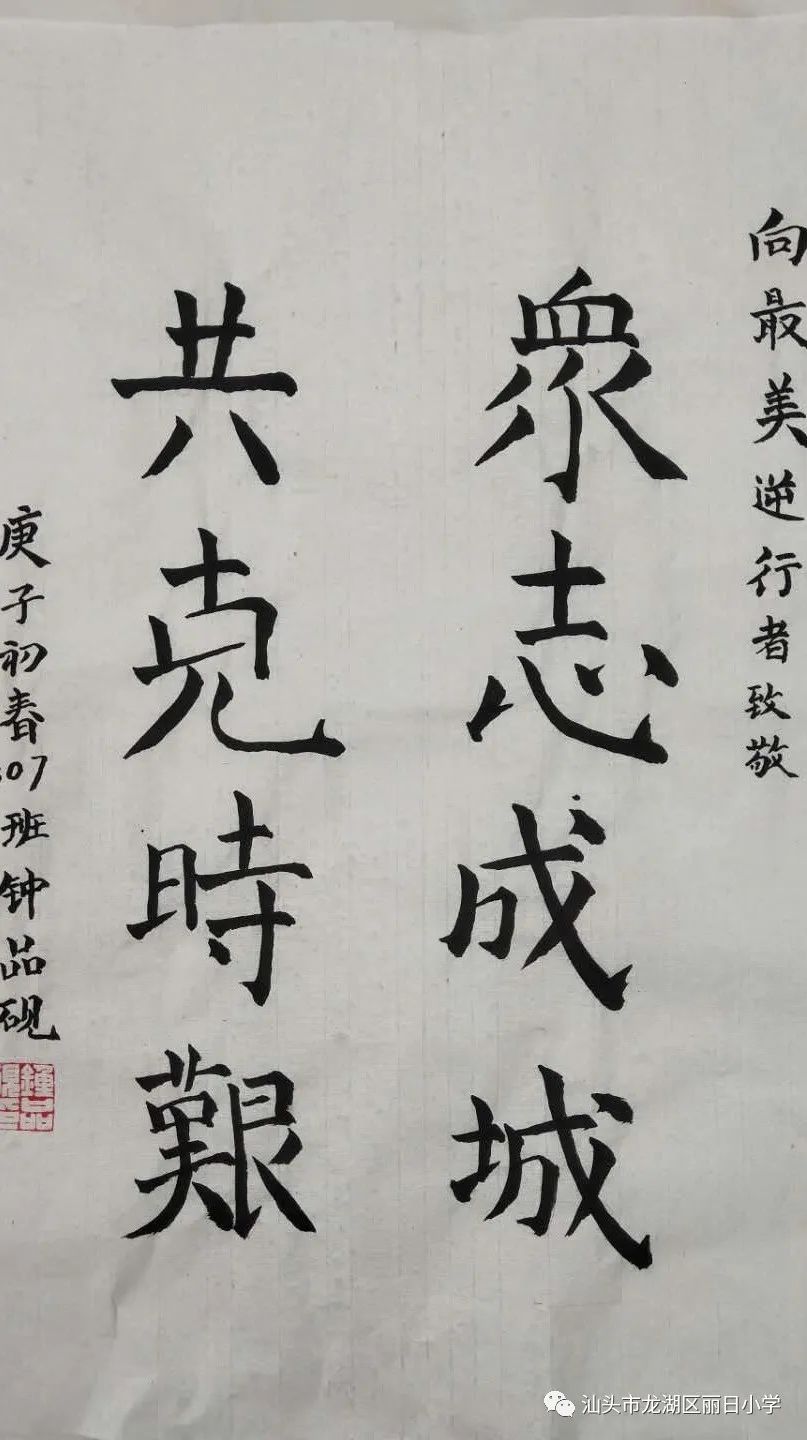 向最美逆行者致敬
衆志成城
共克時艱
庚子初春307班钟品砚
鍾品
汕头市龙湖区丽日小学